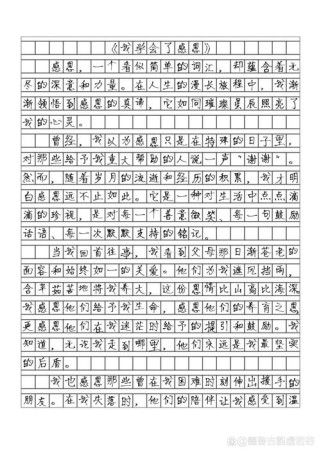 《我学会了感恩》
感恩，一个看似简单的词汇，却蕴含着无
尽的深意和力量。在人生的漫长旅程中，我渐
渐领悟到感恩的真谛，它如同璀璨星辰照亮了
我的心灵。
曾经，我以为感恩只是在特殊的日子里，
对那些给予我重大帮助的人说一声“谢谢”。
然而，随着岁月的流逝和经历的积累，我才明
白感恩远不止如此。它是一种对生活中点点滴
滴的珍视，是对每一个善意微笑、每一句鼓励
话语、每一次默默支持的铭记。
当我回首往事，我看到父母那日渐苍老的
面容和始终如一的关爱。他们为我遮风挡雨，
含辛茹苦地将我养大，这份恩情比山高比海深
我感恩他们给予我生命，感恩他们的养育之恩
更感恩他们在我迷茫时给予的指引和鼓励。我
知道，无论我走到哪里，他们永远是我最坚实
的后盾。
我也感恩那些曾在我困难时刻伸出援手的
朋友。在我失落时，他们的陪伴让我感受到温